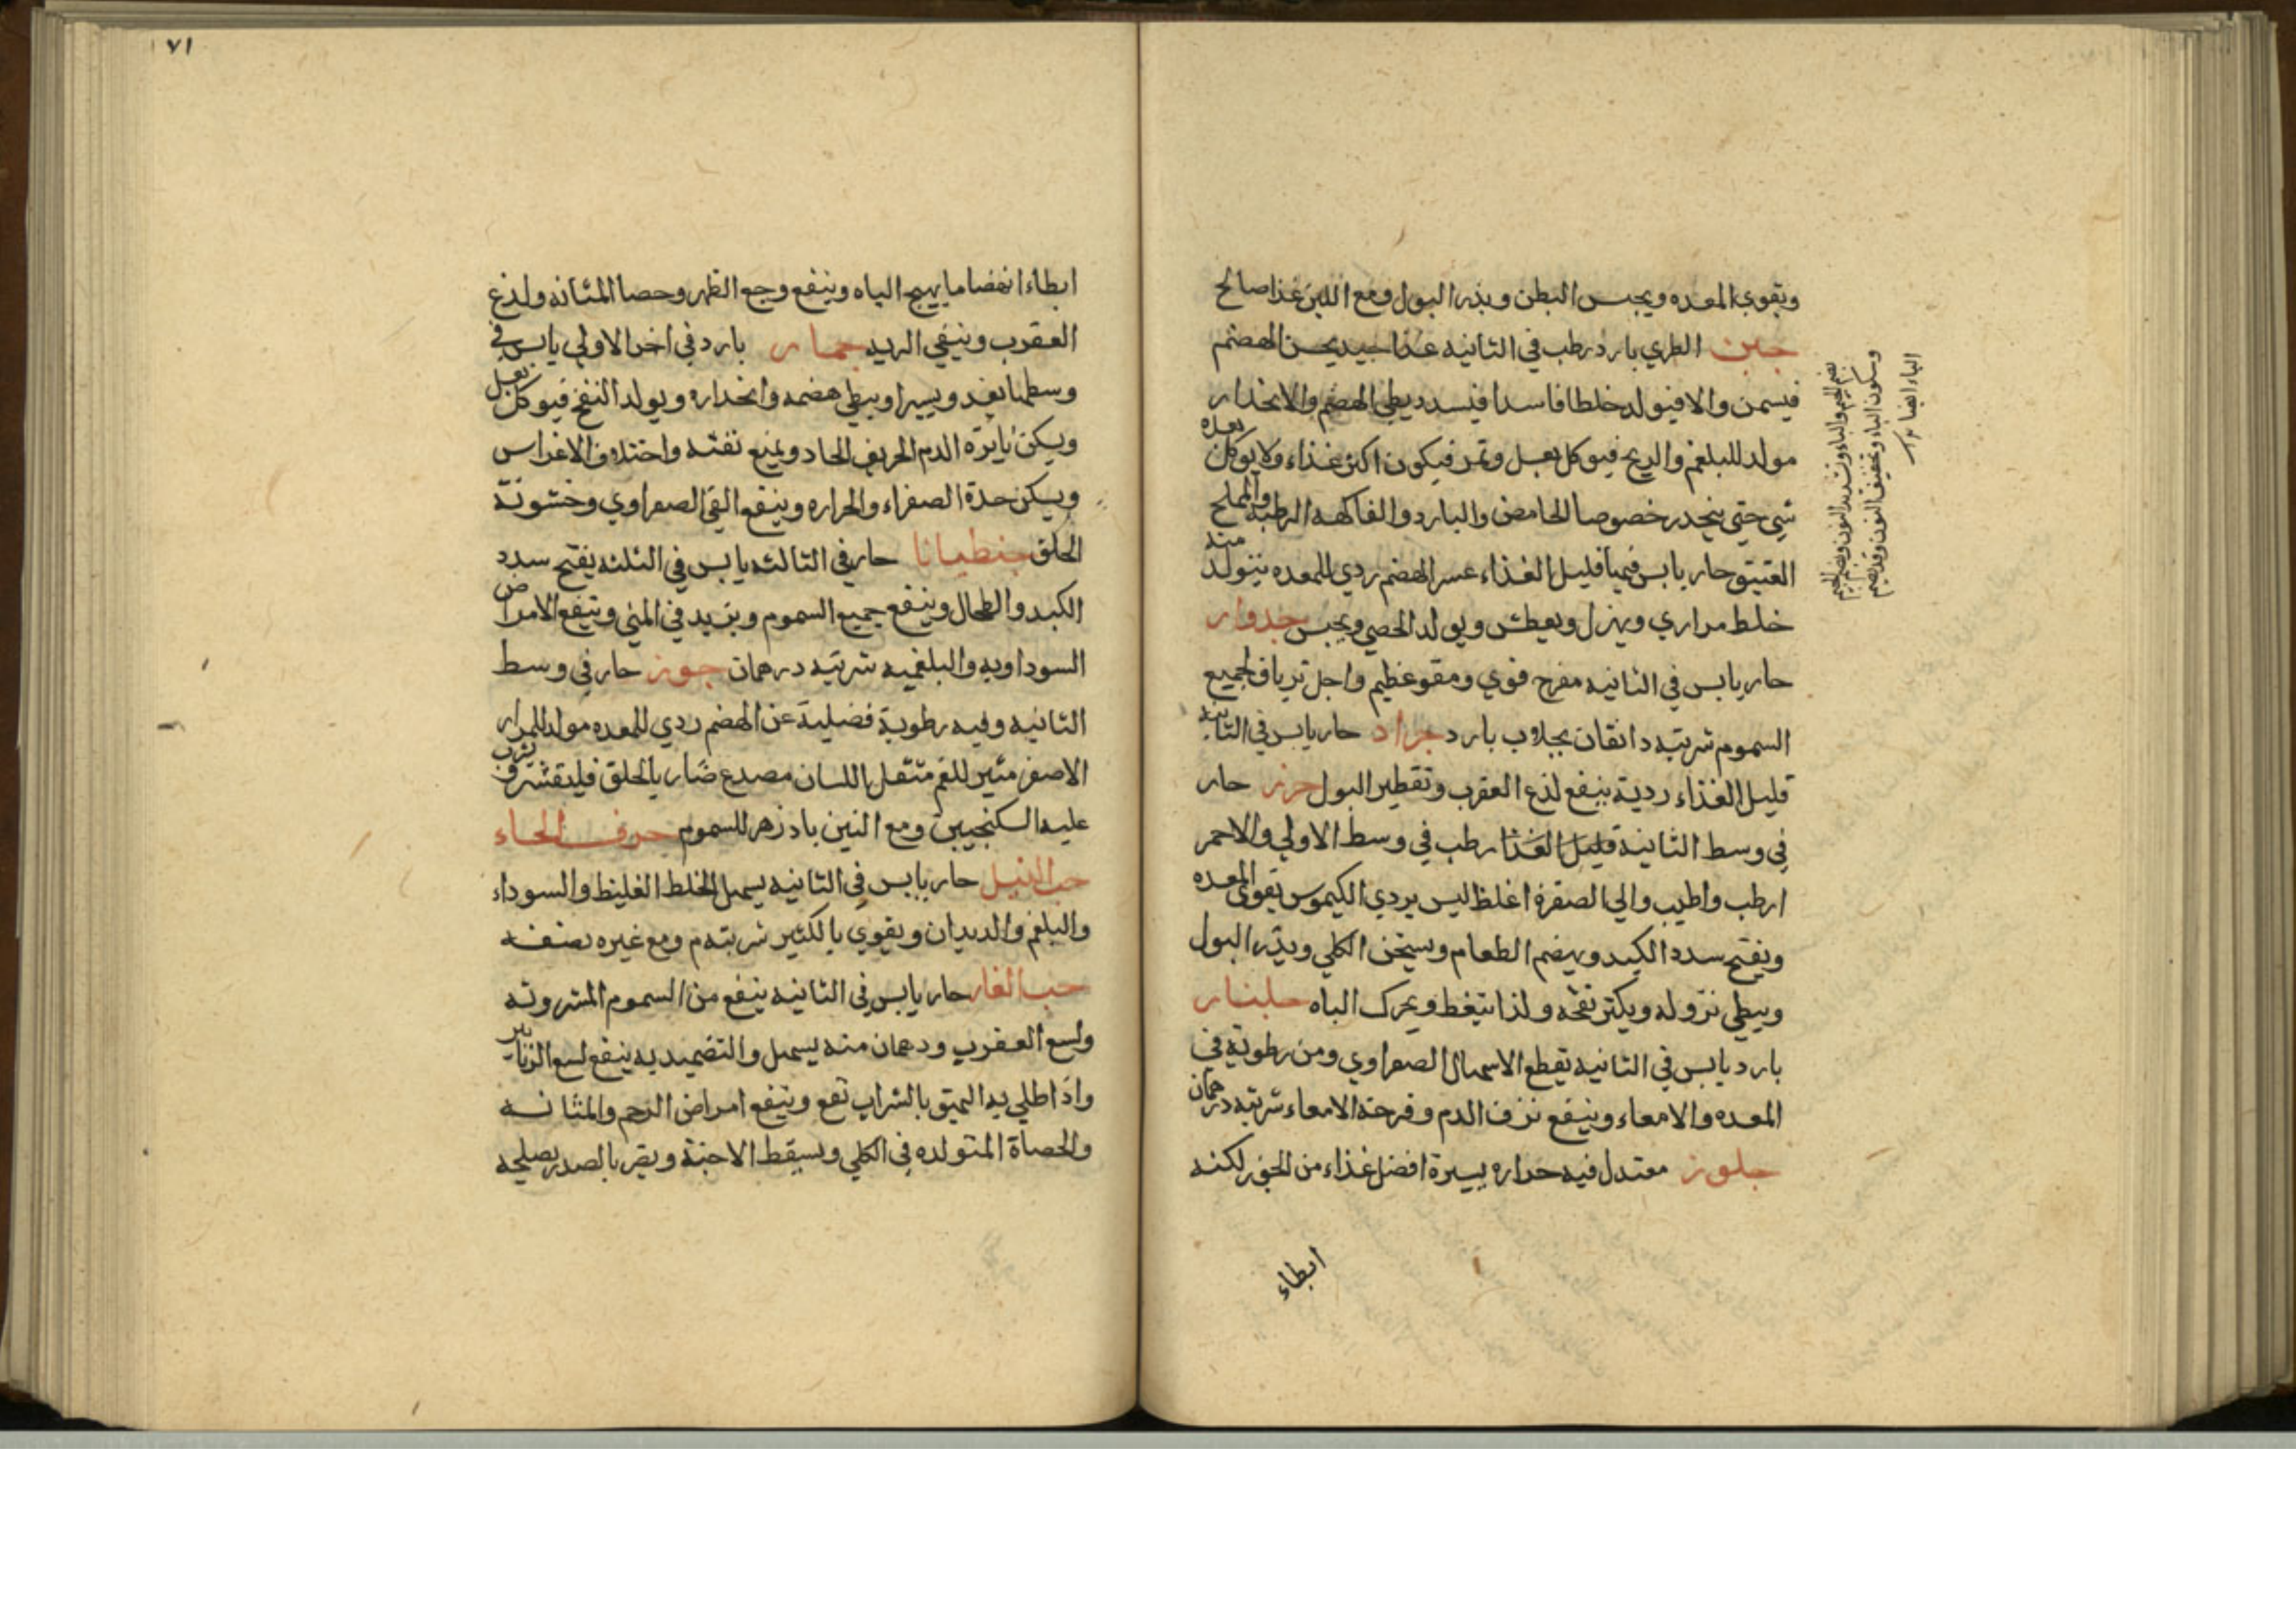 ويقوي المعده ويحبس البطن ويدر البول ومع اللبن غذا صالح
جبن الطري بارد رطب في الثانيه غذا جيد يحسن الهضم
فيسمن والا فيولد خلطا فاسدا فيسدد بطي الهضم والانحدار
مولد للبلغم والريح فيوكل بعسل وتمر فيكون اكثر غذاء ولا يوكل بعده
شي حتي ينحدر خصوصا الحامض والبارد والفاكهه الرطبه والمملح
العتيق حار يابس فيهما قليل الغذاء عسر الهضم ردي للمعده يتولد منه
خلط مراري ويهزل ويعطش ويولد الحصي ويحبس جدوار
حار يابس في الثانيه مفرح قوي ومقو عظيم واجل ترياق لجميع
السموم شربته دانقان بجلاب بارد جراد حار يابس في الثانيه
قليل الغذاء ردية ينفع لذع العقرب وتقطير البول جزر حار
في وسط الثانية قليل الغذا رطب في وسط الاولي والاحمر
ارطب واطيب والي الصفرة اغلظ ليس بردي الكيموس يقوي المعده
ويفتح سدد الكبد ويهضم الطعام ويسخن الكلي ويدر البول
ويبطي نزوله ويكثر نفخه ولذا ينغط ويحرك الباه جلنار
بارد يابس في الثانيه يقطع الاسهال الصفراوي ومن رطوبة في
المعده والامعاء وينفع نزف الدم وقرحة الامعاء شربته درهمان
جلوز معتدل فيه حراره يسيرة افضل غذاء من الجوز لكنه
ابطاء
بضم الجيم والباء وتشديد النون وبضم الجيم
وسكون الباء وتخفيف النون وقد يضم
الباء ايضا
٧١
ابطاء انهضاما يهيج الباه وينفع وجع الظهر وحصا المثانه ولذع
العقرب وينقي الريه جمار بارد في اخر الاولي يابس في
وسطها يغدو يسيرا ويبطي هضمه وانحداره ويولد النفخ فيوكل بعسل
ويسكن نايرة الدم الحريف الحاد ويمنع نفثه واختلاف الاغراس
ويسكن حدة الصفراء والحراره وينفع القي الصفراوي وخشونة
الحلق جنطيانا حار في الثالثه يابس في الثلثه يفتح سدد
الكبد والطحال وينفع جميع السموم ويزيد في المني وينفع الامراض
السوداويه والبلغميه شربته درهمان جوز حار في وسط
الثانيه وفيه رطوبة فضلية عن الهضم ردي للمعده مولد للمرار
الاصفر مثير للغم مثقل اللسان مصدع ضار بالحلق فليقشر ويشرب
عليه السكنجبين ومع التين بادزهر للسموم حرف الحاء
حب النيل حار يابس في الثانيه يسهل الخلط الغليظ والسوداء
والبلغم والديدان ويقوي بالكثير شربته م ومع غيره نصفه
حب الغار حار يابس في الثانيه ينفع من السموم المشروبه
ولسع العقرب ودرهمان منه يسهل والتضميد به ينفع لسع الزنابير
واذا طلي به البهق بالشراب نفع وينفع امراض الرحم والمثانه
والحصاة المتولده في الكلي ويسقط الاجنة ويضر بالصدر يصلحه